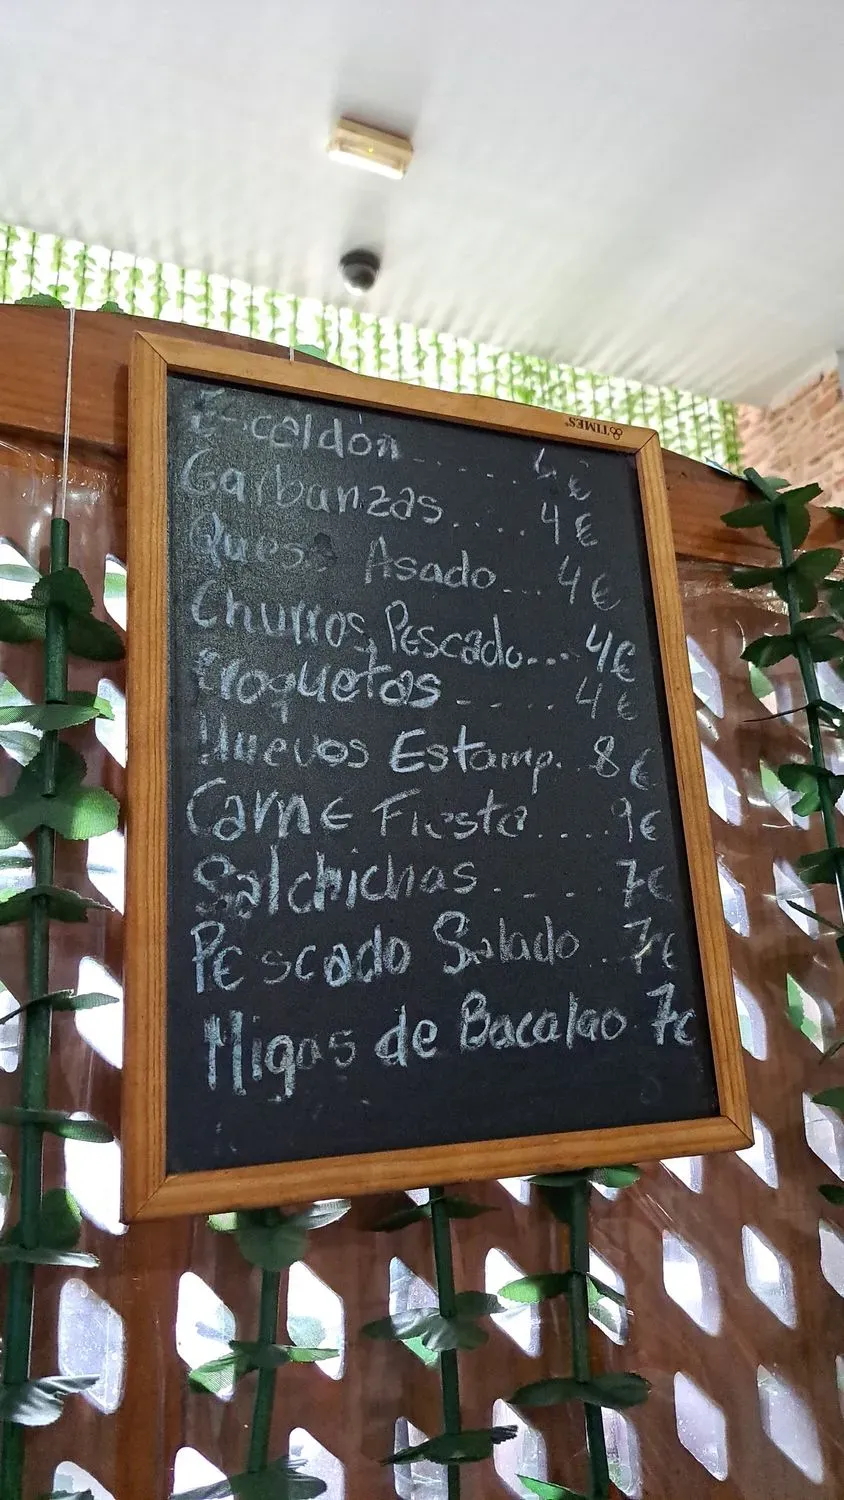 TIMES
Escaldón ..... 4 €
Garbanzas .... 4 €
Queso Asado ... 4 €
Churros Pescado... 4€
Croquetas - - . . 4 €
Huevos Estamp. . 8 €
Carne Fiesta .... 9€
Salchichas . - - . 7€
Pescado Salado . . 7€
Migas de Bacalao . 7€